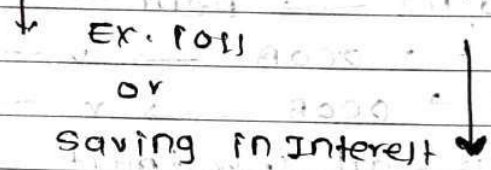 ↓ Ex. loss ↓
or
Saving in Interest